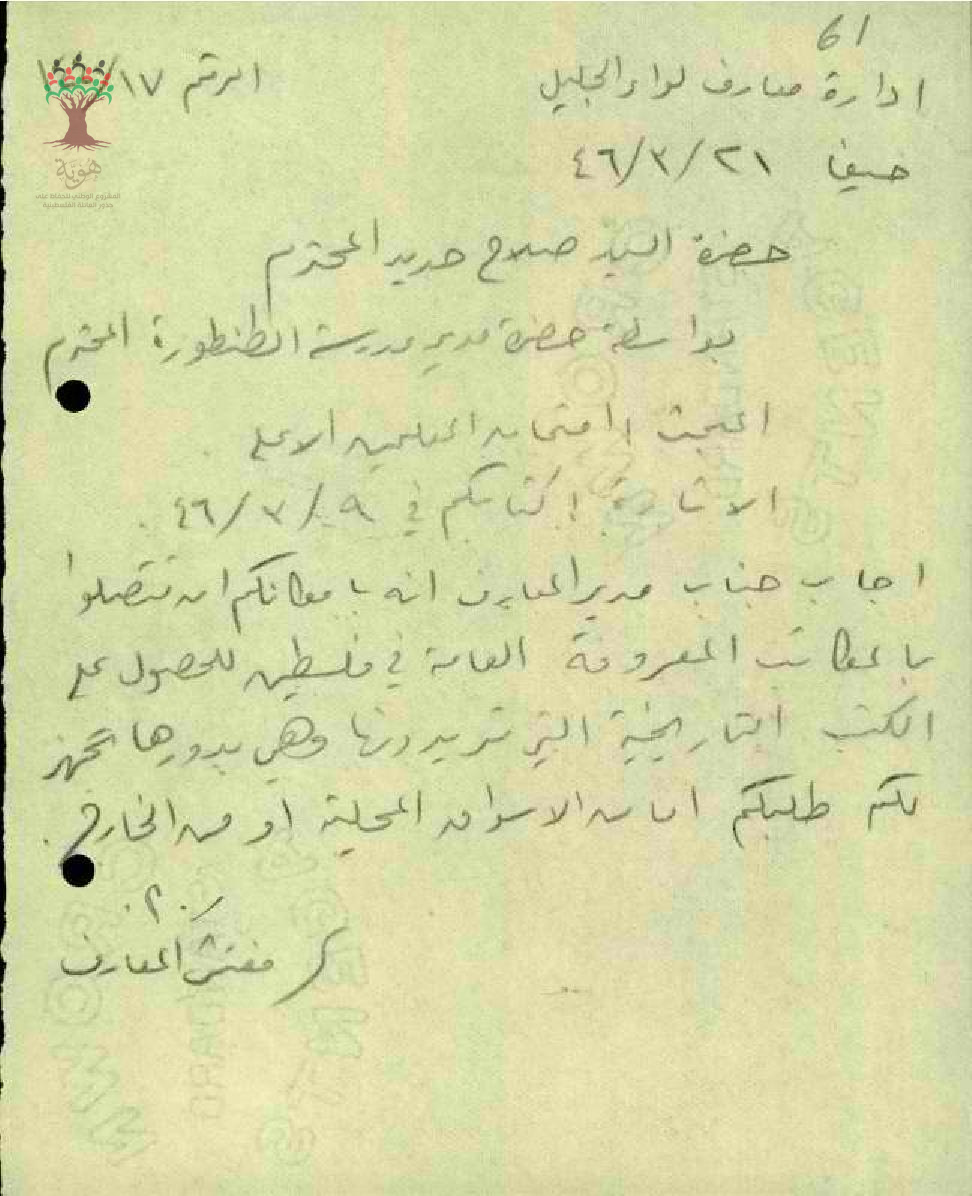 61
ادارة معارف لواء الجليل
الرقم ١٧/
حيفا ٢١/٣/٤٦
هوية
المشروع الوطني للحفاظ على
جذور العائلة الفلسطينية
حضرة السيد صلاح حديد المحترم
بواسطة حضرة مدير مدرسة الطنطورة المحترم
المبحث : امتحان المعلمين الاعلى
الاشارة : كتابكم في ٩/٣/٤٦.
اجاب جناب مدير المعارف انه بامكانكم ان تتصلوا
بالمكاتب المعروفة العامة في فلسطين للحصول على
الكتب التاريخية التي تريدونها وهي بدورها تجهز
لكم طلبكم اما من الاسواق المحلية او من الخارج.
مفتش المعارف